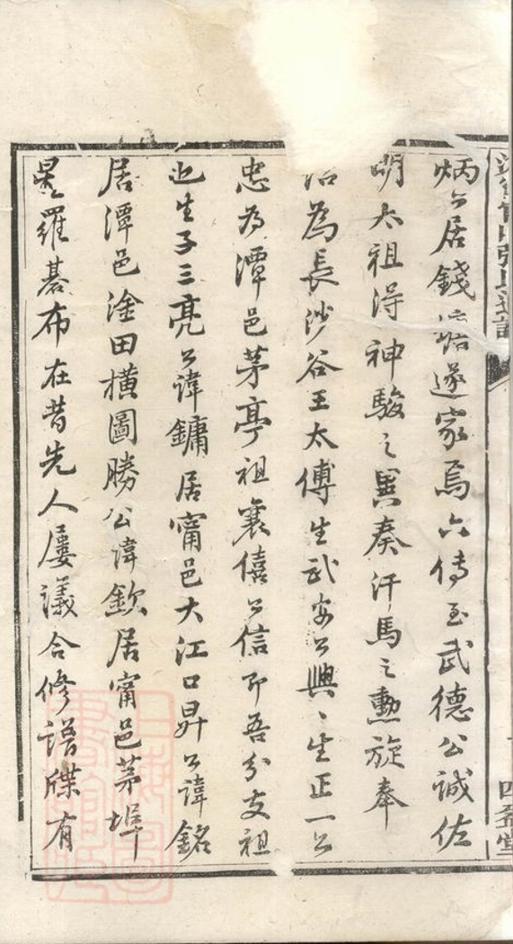 炳公居錢塘遂家焉六傳至武德公誠佐
明太祖淂神駿之異奏汗馬之勳旋奉
為長沙谷王太傅生武安公興〻生正一公
忠為潭邑茅亭祖襄僖公信即吾分支祖
也生子三亮公諱鏞居甯邑大江口昇公諱銘
居潭邑淦田橫圖勝公諱欽居甯邑茅埠
星羅碁布在昔先人屢議合修譜牒有
氏通譜
四
堂
上海圖書館